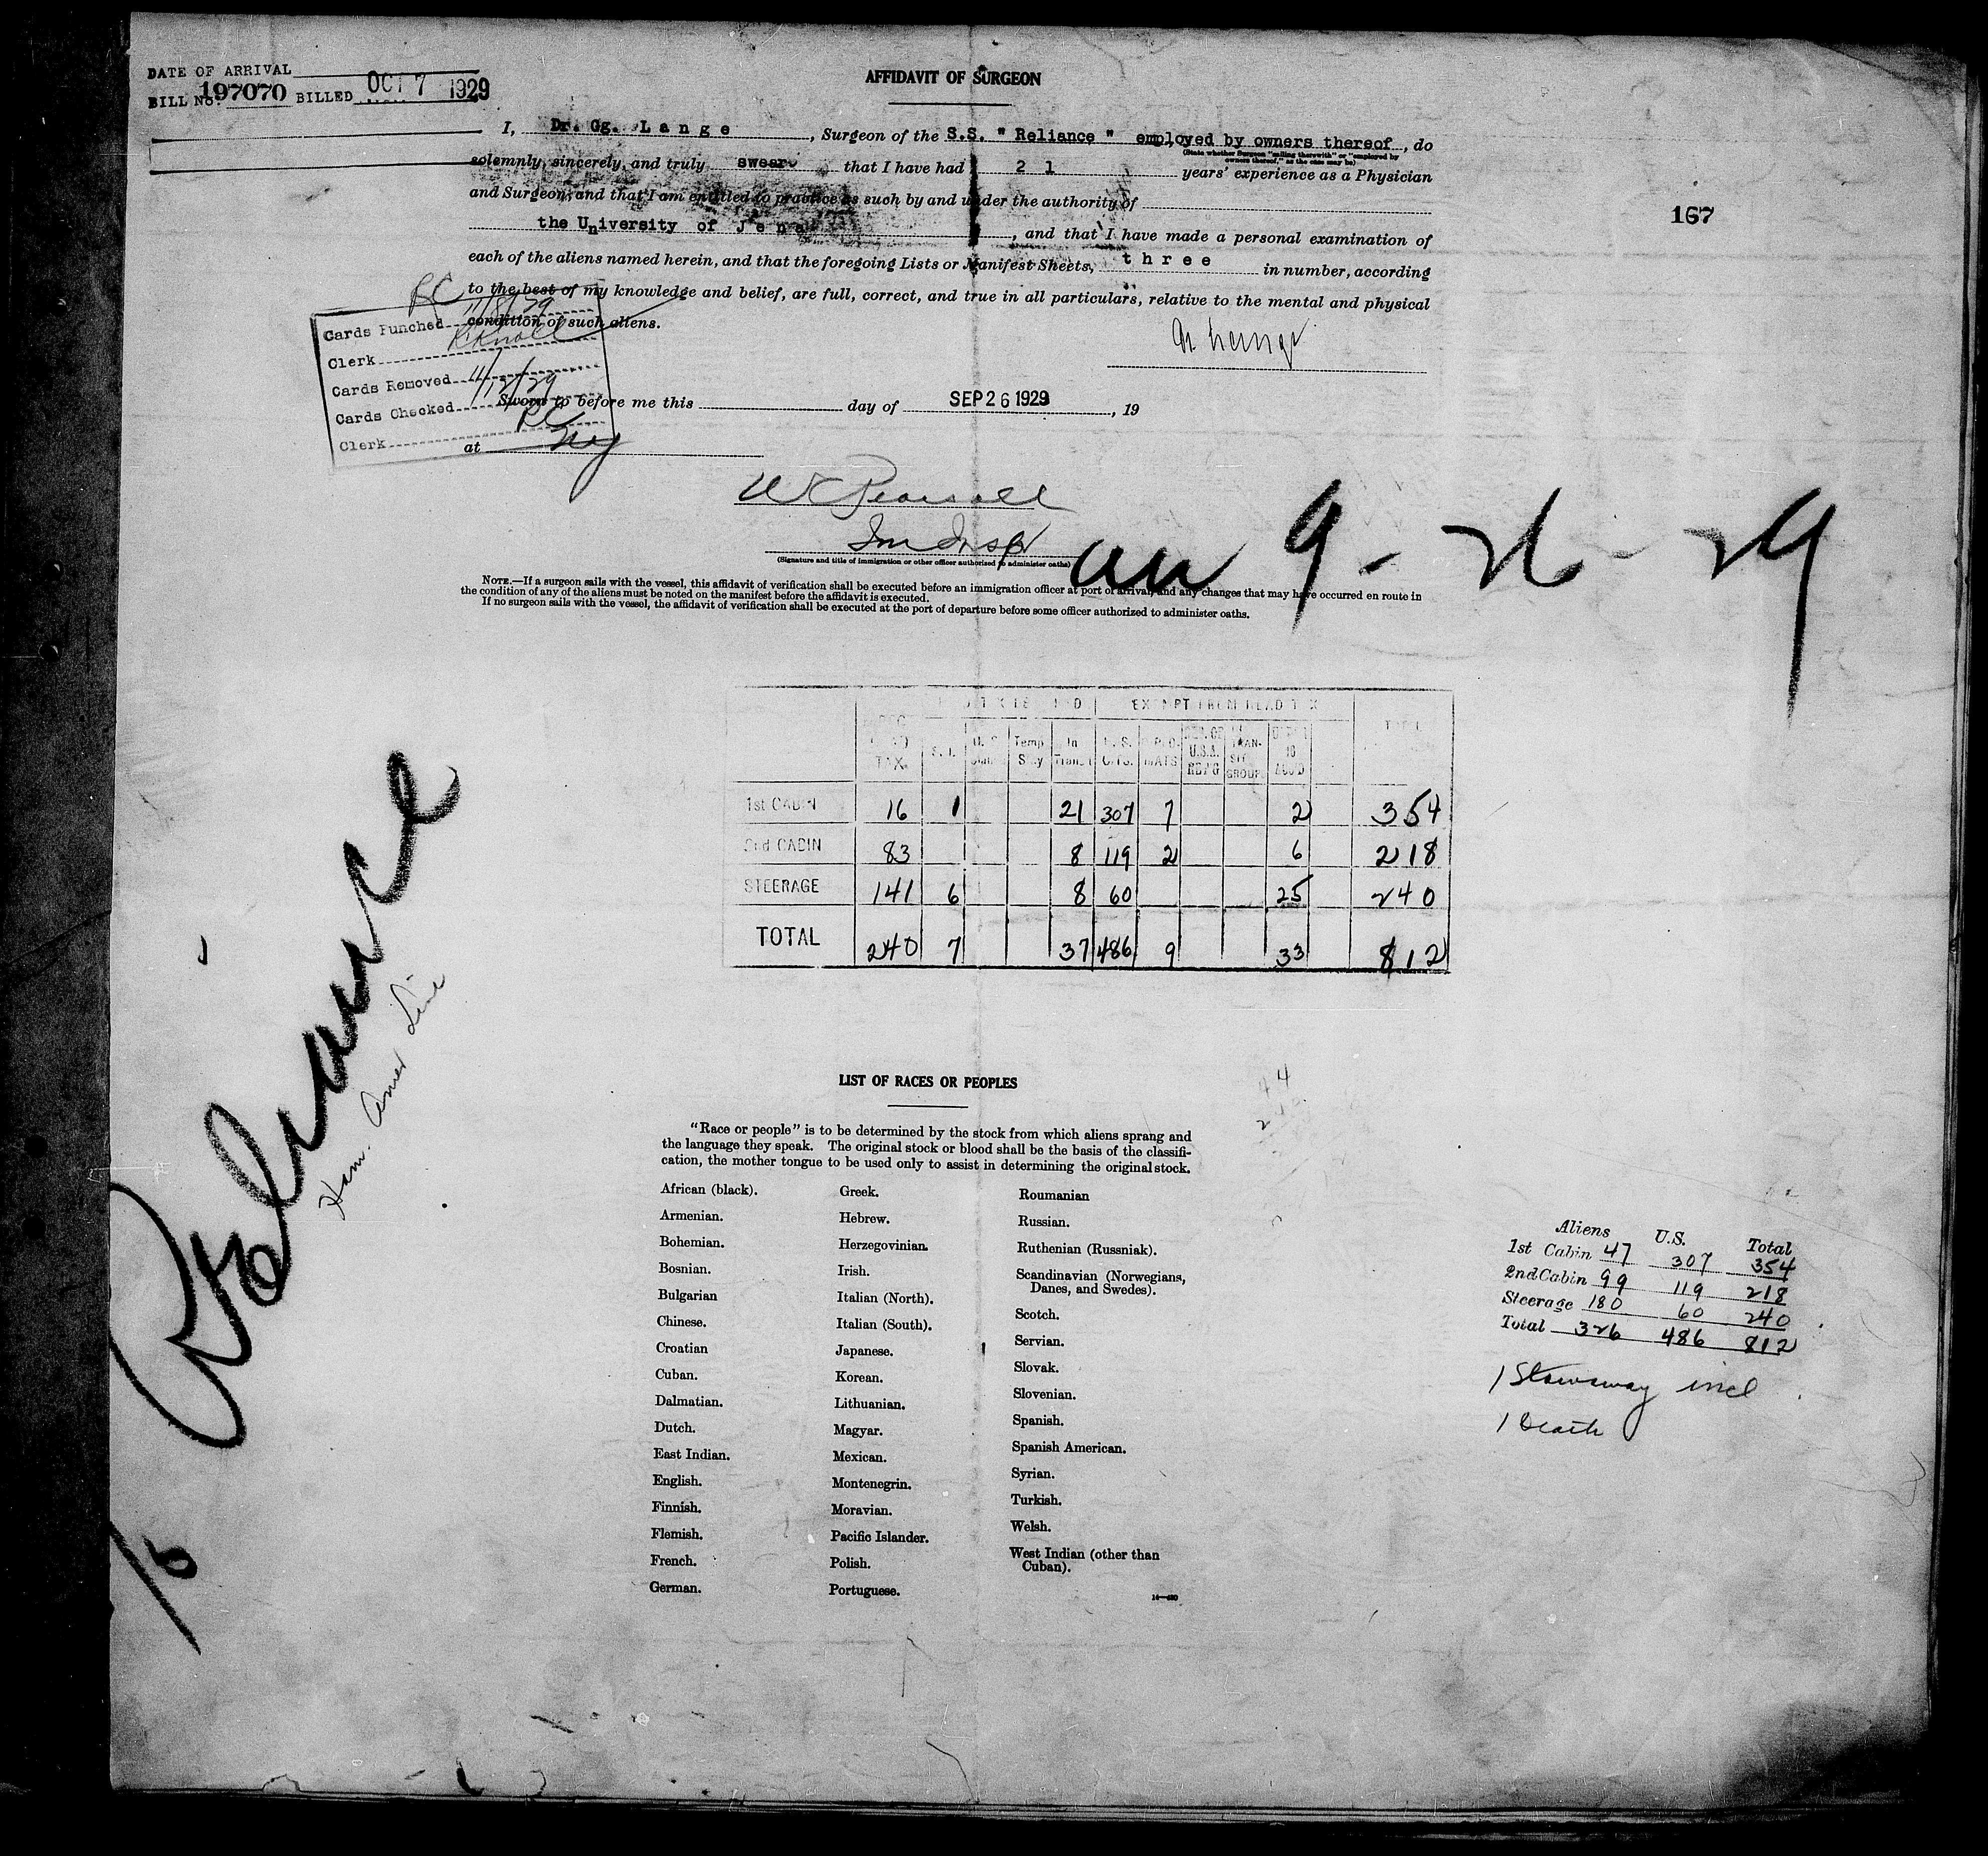 DATE OF ARRIVAL
BILL No. 197070 BILLED OCT 7 1929
AFFIDAVIT OF SURGEON
I, Dr. Gg. Lange, Surgeon of the S.S. " Reliance " employed by owners thereof, do
(State whether Surgeon "sailing therewith" or "employed by
owners thereof," as the case may be)
solemnly, sincerely, and truly swear that I have had 21 years' experience as a Physician
and Surgeon, and that I am entitled to practice as such by and under the authority of
the University of Jena, and that I have made a personal examination of
each of the aliens named herein, and that the foregoing Lists or Manifest Sheets, three in number, according
to the best of my knowledge and belief, are full, correct, and true in all particulars, relative to the mental and physical
condition of such aliens.
167
RC
Cards Punched 11/8/29
Clerk
Cards Removed
Cards Checked 11/12/29
Clerk RC
Sworn to before me this day of SEP 26 1929, 19
at NY
W C Pearsall
Im Insp
(Signature and title of immigration or other officer authorized to administer oaths)
9-26-29
NOTE.—If a surgeon sails with the vessel, this affidavit of verification shall be executed before an immigration officer at port of arrival, and any changes that may have occurred en route in
the condition of any of the aliens must be noted on the manifest before the affidavit is executed.
If no surgeon sails with the vessel, the affidavit of verification shall be executed at the port of departure before some officer authorized to administer oaths.
EXEMPT FROM HEAD TAX
TAX. Temp Stay In Transit U.S. CITS. U.S.A. TRANSIT GROUP TOTAL
1st CABIN 16 1 21 307 7 2 354
2nd CABIN 83 8 119 2 6 218
STEERAGE 141 6 8 60 25 240
TOTAL 240 7 37 486 9 33 812
Reliance
Ham. Amer Line
LIST OF RACES OR PEOPLES
"Race or people" is to be determined by the stock from which aliens sprang and
the language they speak. The original stock or blood shall be the basis of the classifi-
cation, the mother tongue to be used only to assist in determining the original stock.
African (black).
Armenian.
Bohemian.
Bosnian.
Bulgarian
Chinese.
Croatian
Cuban.
Dalmatian.
Dutch.
East Indian.
English.
Finnish.
Flemish.
French.
German.
Greek.
Hebrew.
Herzegovinian.
Irish.
Italian (North).
Italian (South).
Japanese.
Korean.
Lithuanian.
Magyar.
Mexican.
Montenegrin.
Moravian.
Pacific Islander.
Polish.
Portuguese.
Roumanian
Russian.
Ruthenian (Russniak).
Scandinavian (Norwegians,
Danes, and Swedes).
Scotch.
Servian.
Slovak.
Slovenian.
Spanish.
Spanish American.
Syrian.
Turkish.
Welsh.
West Indian (other than
Cuban).
Aliens U.S. Total
1st Cabin 47 307 354
2nd Cabin 99 119 218
Steerage 180 60 240
Total 326 486 812
1 Stowaway incl
1 Death